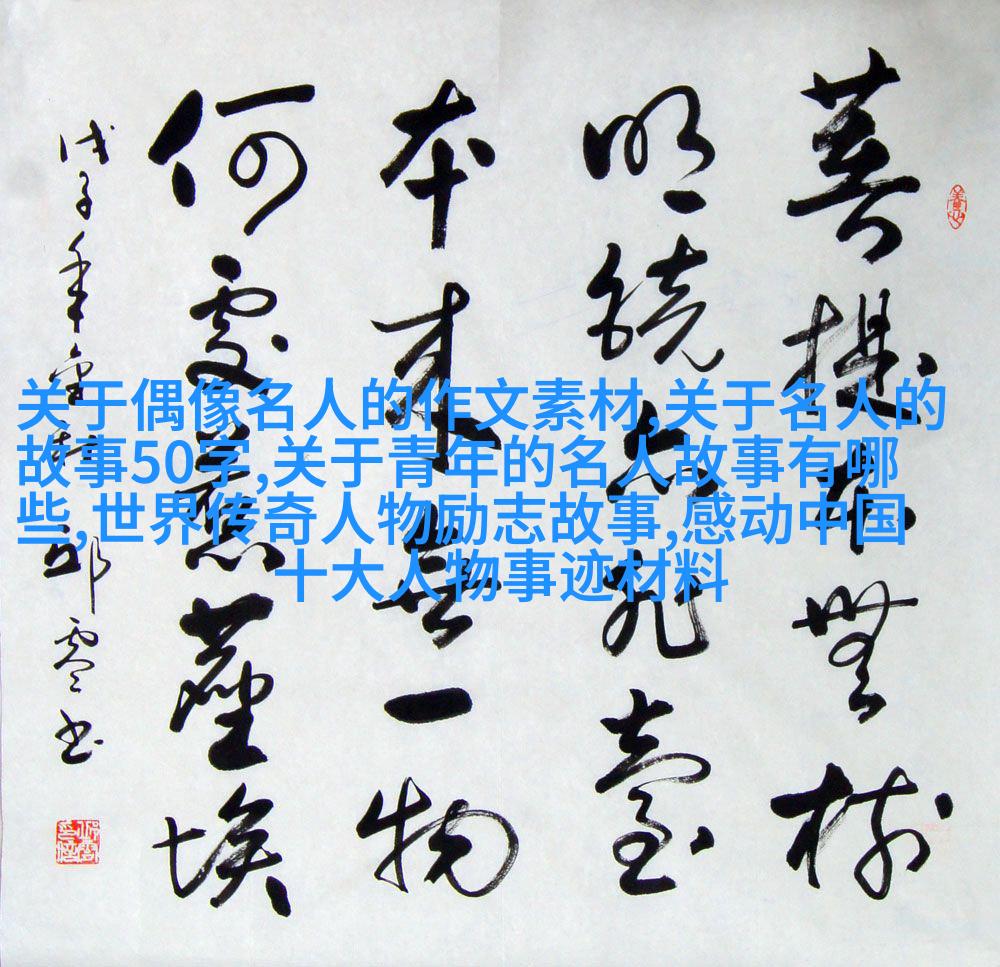 菩提本無樹
明鏡亦非臺
本來無一物
何處惹塵埃
戊子年
关于偶像名人的作文素材,关于名人的
故事50字,关于青年的名人故事有哪
些,世界传奇人物励志故事,感动中国
十大人物事迹材料